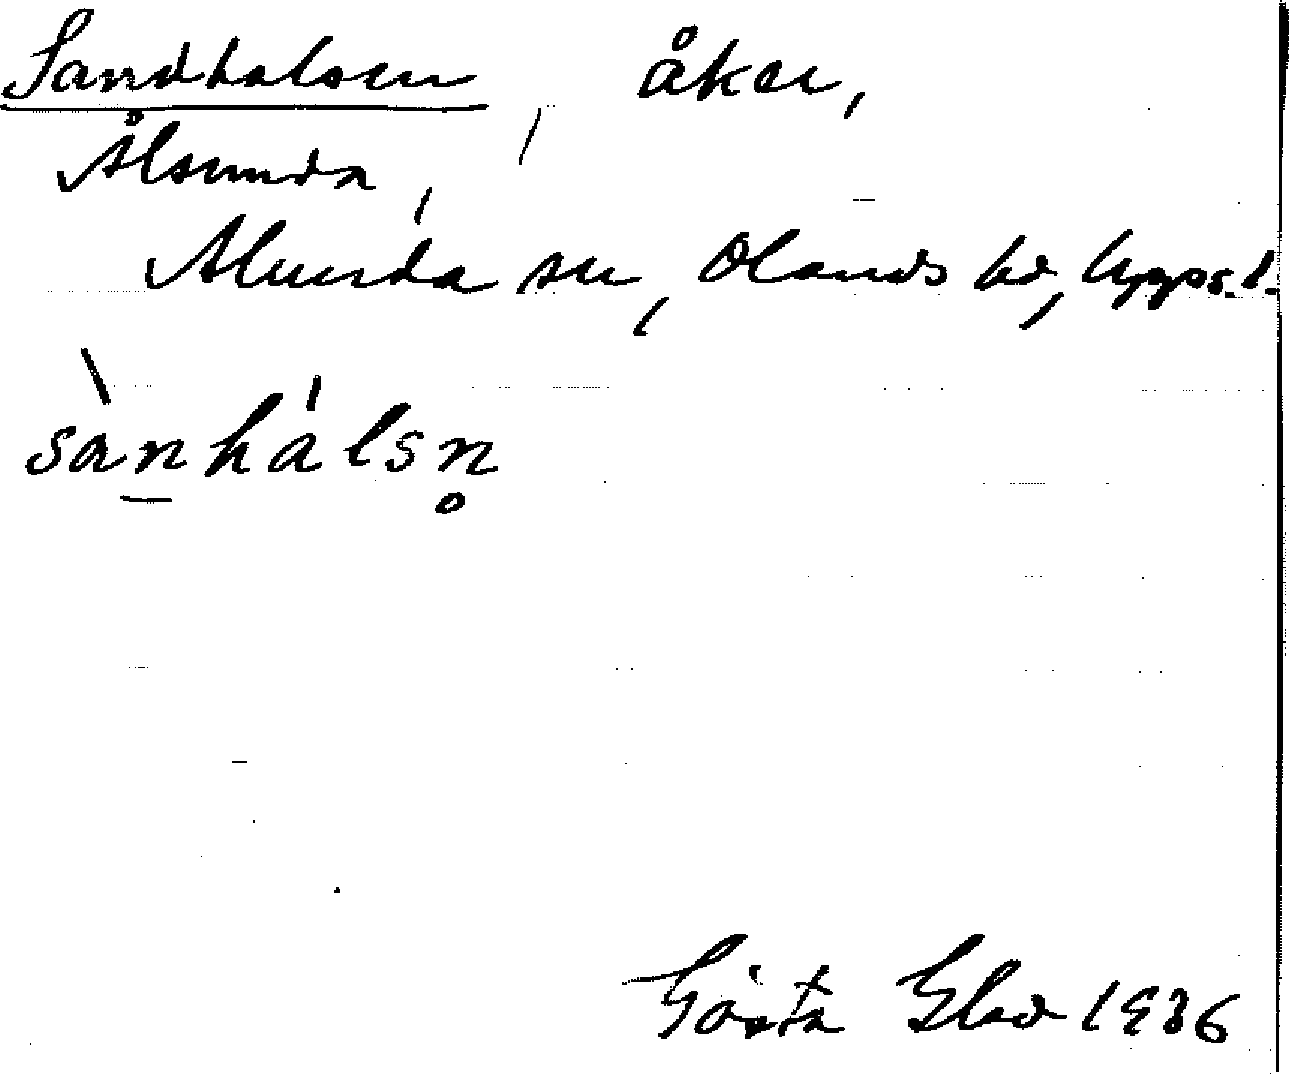 Sandhalsen, åker,
Ålsunda,
Alunda sn, Olands hd, Upps. l.
sànhálsn̥
Gösta Glad 1936